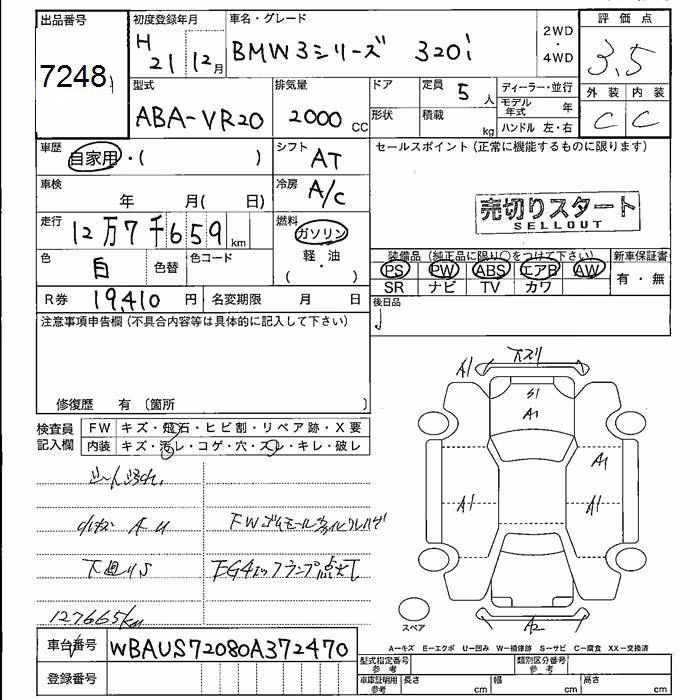 出品番号 初度登録年月 車名・グレード 評価点
7248 H21 12月 BMW3シリーズ 320i 2WD・4WD 3.5
型式 排気量 ドア 定員 5人 ディーラー・並行 外装 内装
ABA-VR20 2000cc 形状 積載 kg モデル年式 年 C C
ハンドル 左・右
車歴 自家用・( ) シフト AT セールスポイント(正常に機能するものに限ります)
車検 年 月( 日) 冷房 A/C
売切りスタート
SELLOUT
走行 12万7千659km 燃料 ガソリン・軽油 ( )
装備品(純正品に限り○をつけて下さい) 新車保証書
色 白 色替 色コード
PS PW ABS エアB AW 有・無
SR ナビ TV カワ
R券 19,410円 名変期限 月 日 後日品
注意事項申告欄(不具合内容等は具体的に記入して下さい)
修復歴 有 〔箇所 〕
検査員記入欄 FW キズ・飛石・ヒビ割・リペア跡・X要
内装 キズ・汚レ・コゲ・穴・スレ・キレ・破レ
A1
S1
A1
A1
A1
A1
A2
スペア
小キズ A U
下廻りS
127665km
車台番号 WBAUS72080A372470
登録番号
A→キズ E→エクボ U→凹み W→補修跡 S→サビ C→腐食 XX→交換済
型式指定番号 参考 類別区分番号 参考
車庫証明用 参考 長さ cm 幅 cm 高さ cm